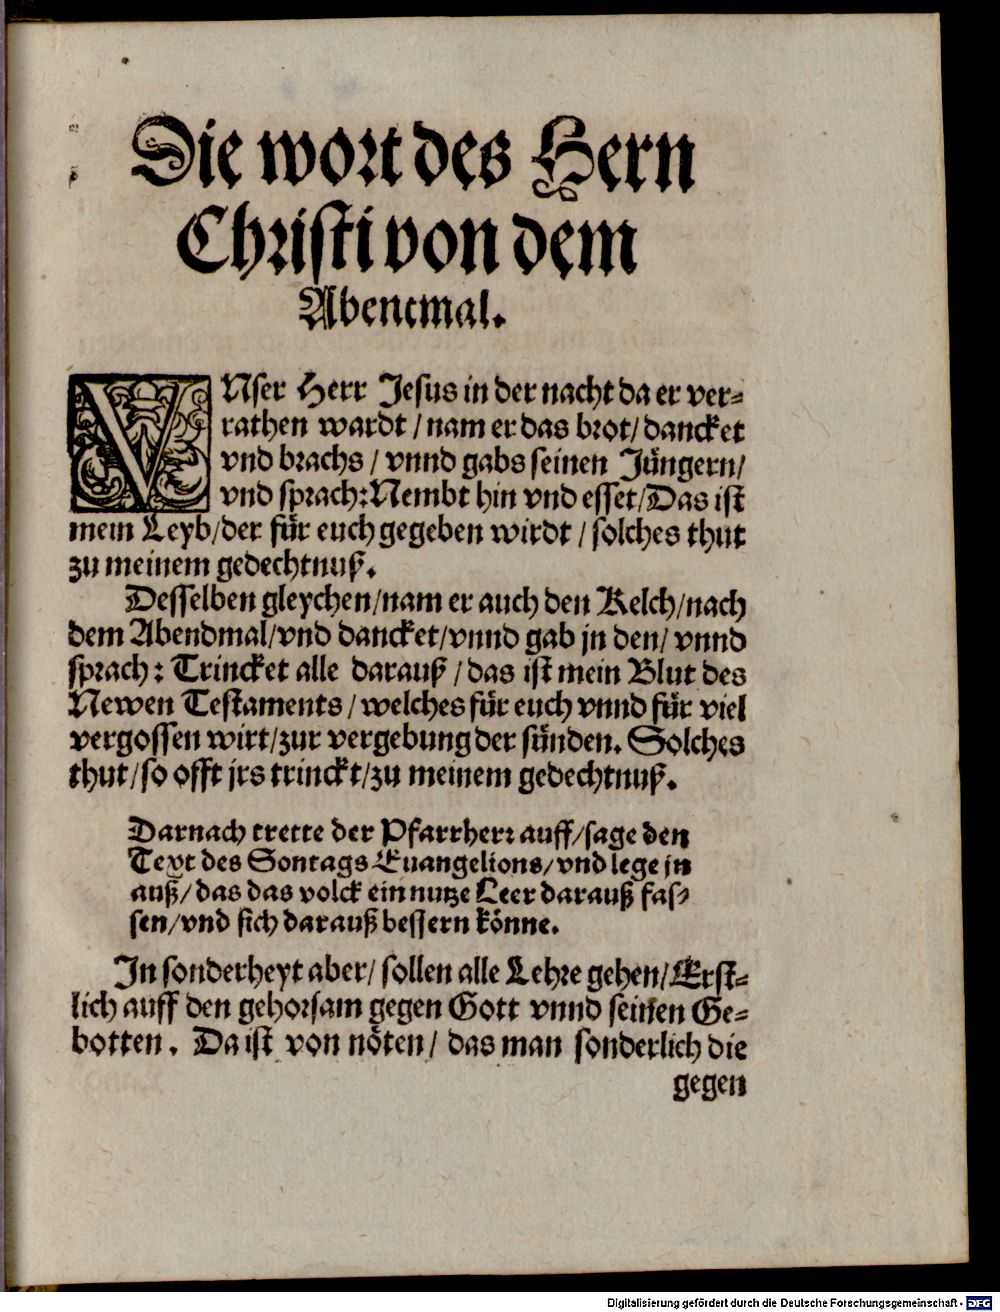 Die wort des Hern
Christi von dem
Abentmal.
VNser Herr Jesus in der nacht da er ver-
rathen wardt / nam er das brot / dancket
vnd brachs / vnnd gabs seinen Jüngern /
vnd sprach: Nembt hin vnd esset / Das ist
mein Leyb / der für euch gegeben wirdt / solches thut
zu meinem gedechtnuß.
Desselben gleychen / nam er auch den Kelch / nach
dem Abendmal / vnd dancket / vnnd gab jn den / vnnd
sprach: Trincket alle darauß / das ist mein Blut des
Newen Testaments / welches für euch vnnd für viel
vergossen wirt / zur vergebung der sünden. Solches
thut / so offt jrs trinckt / zu meinem gedechtnuß.
Darnach trette der Pfarrherr auff / sage den
Text des Sontags Euangelions / vnd lege jn
auß / das das volck ein nutze Leer darauß fas-
sen / vnd sich darauß bessern könne.
In sonderheyt aber / sollen alle Lehre gehen / Erst-
lich auff den gehorsam gegen Gott vnnd seinen Ge-
botten. Da ist von nöten / das man sonderlich die
gegen
Digitalisierung gefördert durch die Deutsche Forschungsgemeinschaft - DFG